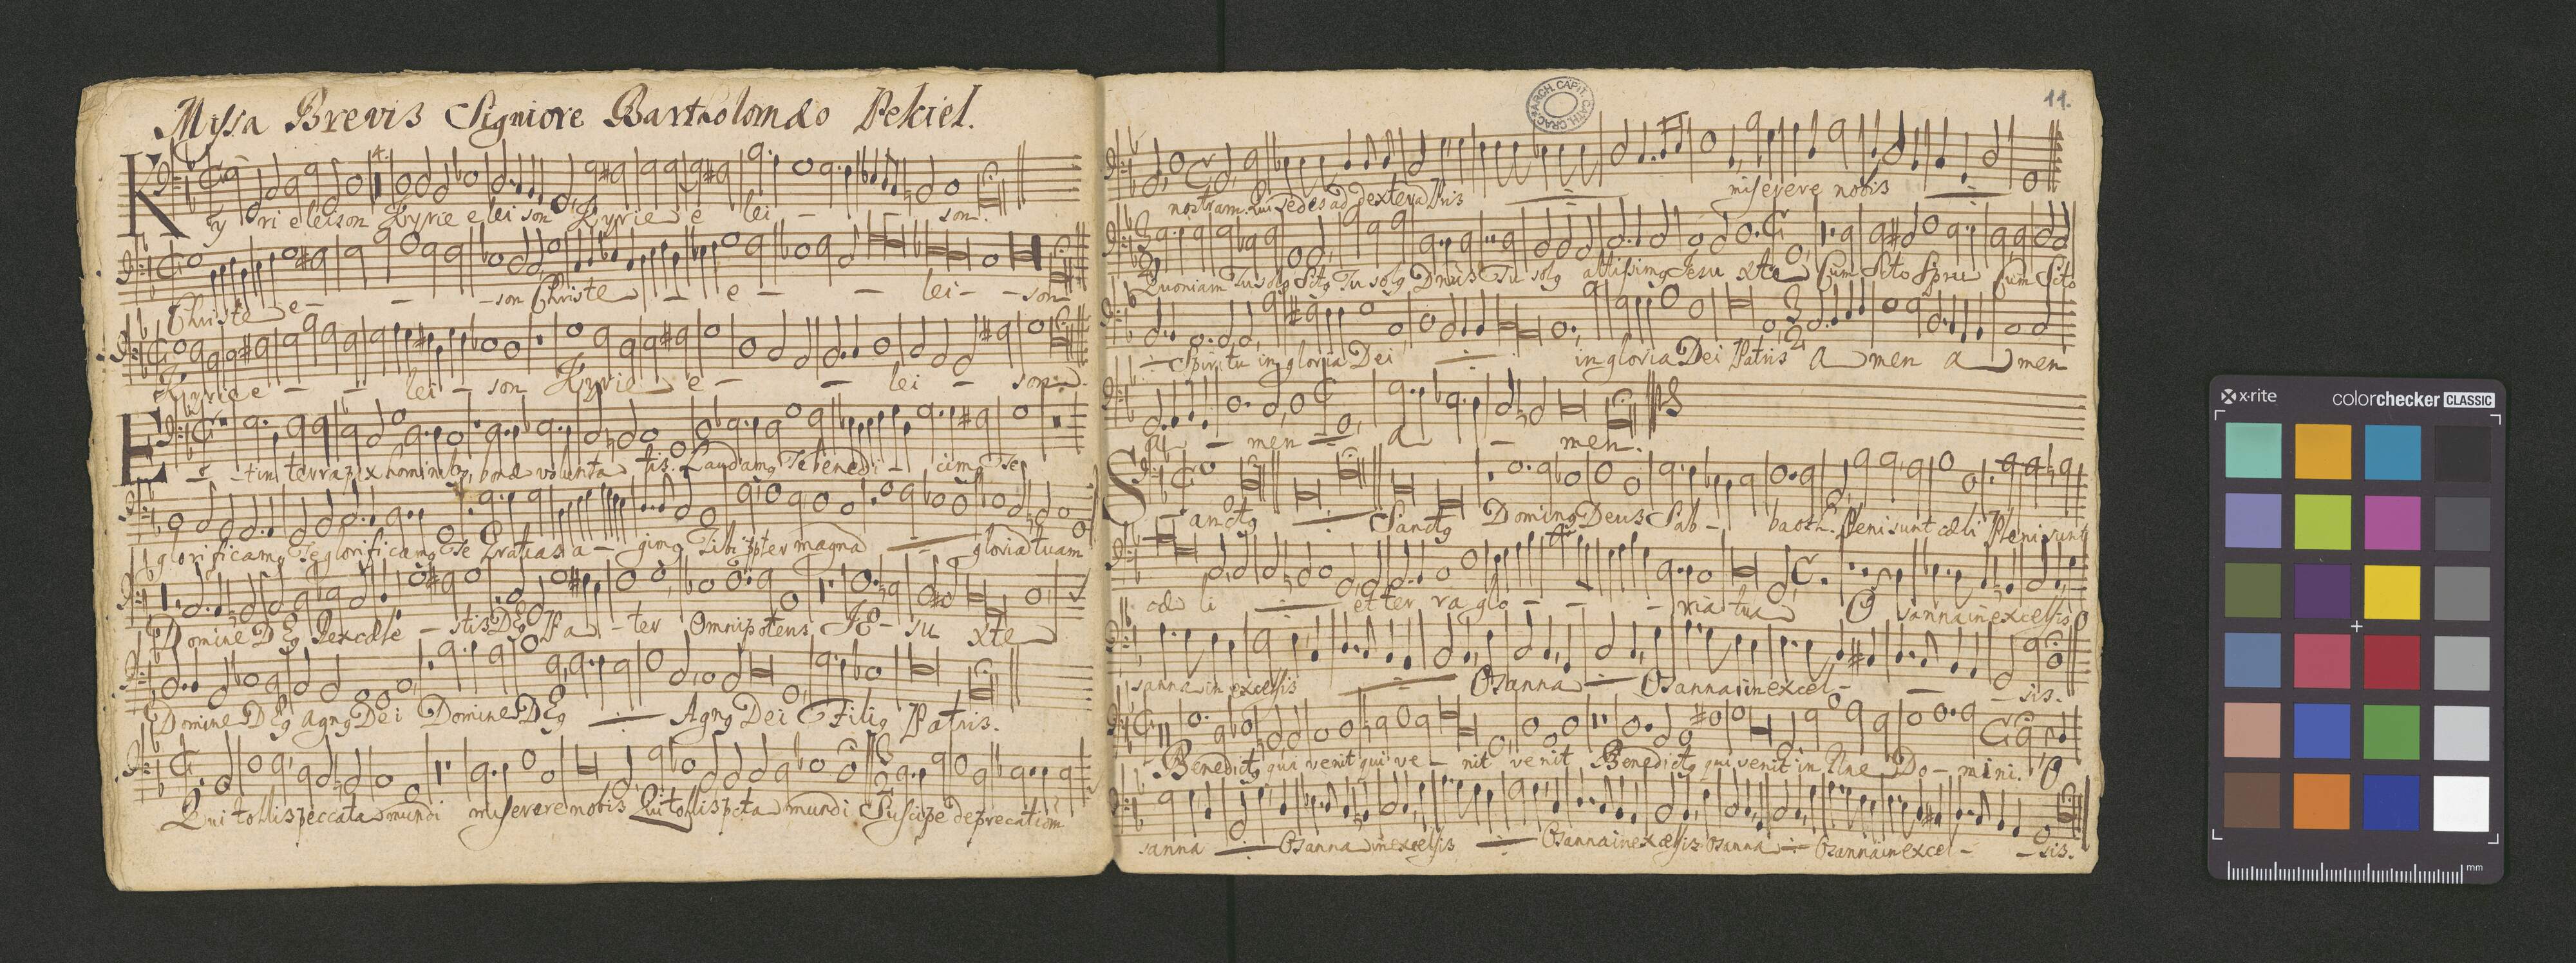 Missa Brevis Signiore Bartholomæo Pekiel.
4.
Ky ri e leison Kyrie e lei son Kyrie e lei - son.
Christe e - - - son Christe - e - - lei - - son
Kyrie e - - lei - son Kyrie e - - lei - son.
E - t in terra pax hominibq bonæ volunta tis. Laudamq Te benedi - cimq Te
glorificamq Te glorificamq Te Gratias a - gimq Tibi ppter magna gloria tuam
Domine DEq Rex cæle - stis DEq Pa - ter Omnipotens JE - su xte
Domine DEq agnq Dei Domine DEq Agnq Dei Filiq Patris.
Qui tollis peccata mundi miserere nobis Qui tollis pcta mundi Suscipe deprecationē
ARCH. CAPIT. CATH. CRAC.
11.
nostram. Qui sedes ad dextera Pris miserere nobis
Quoniam Tu solq Sctq Tu solq Dnus Tu solq altissimq Jesu xte Cum Scto Spru Cum Scto
Spiritu in gloria Dei in gloria Dei Patris a men a men
a - men a - men.
S - anctq Sanctq Dominq Deus Sab - baoth. Pleni sunt cæli Pleni sunt
cæ li et ter ra glo - - - ria tua O sanna in excelsis O
sanna in excelsis Osanna Osanna in excel - - - sis.
Benedictq qui venit qui ve - nit venit Benedictq qui venit in Nne Do - mini. O
sanna Osanna in excelsis Osanna in excelsis Osanna Osanna in excel - - sis.
x·rite colorchecker CLASSIC
mm